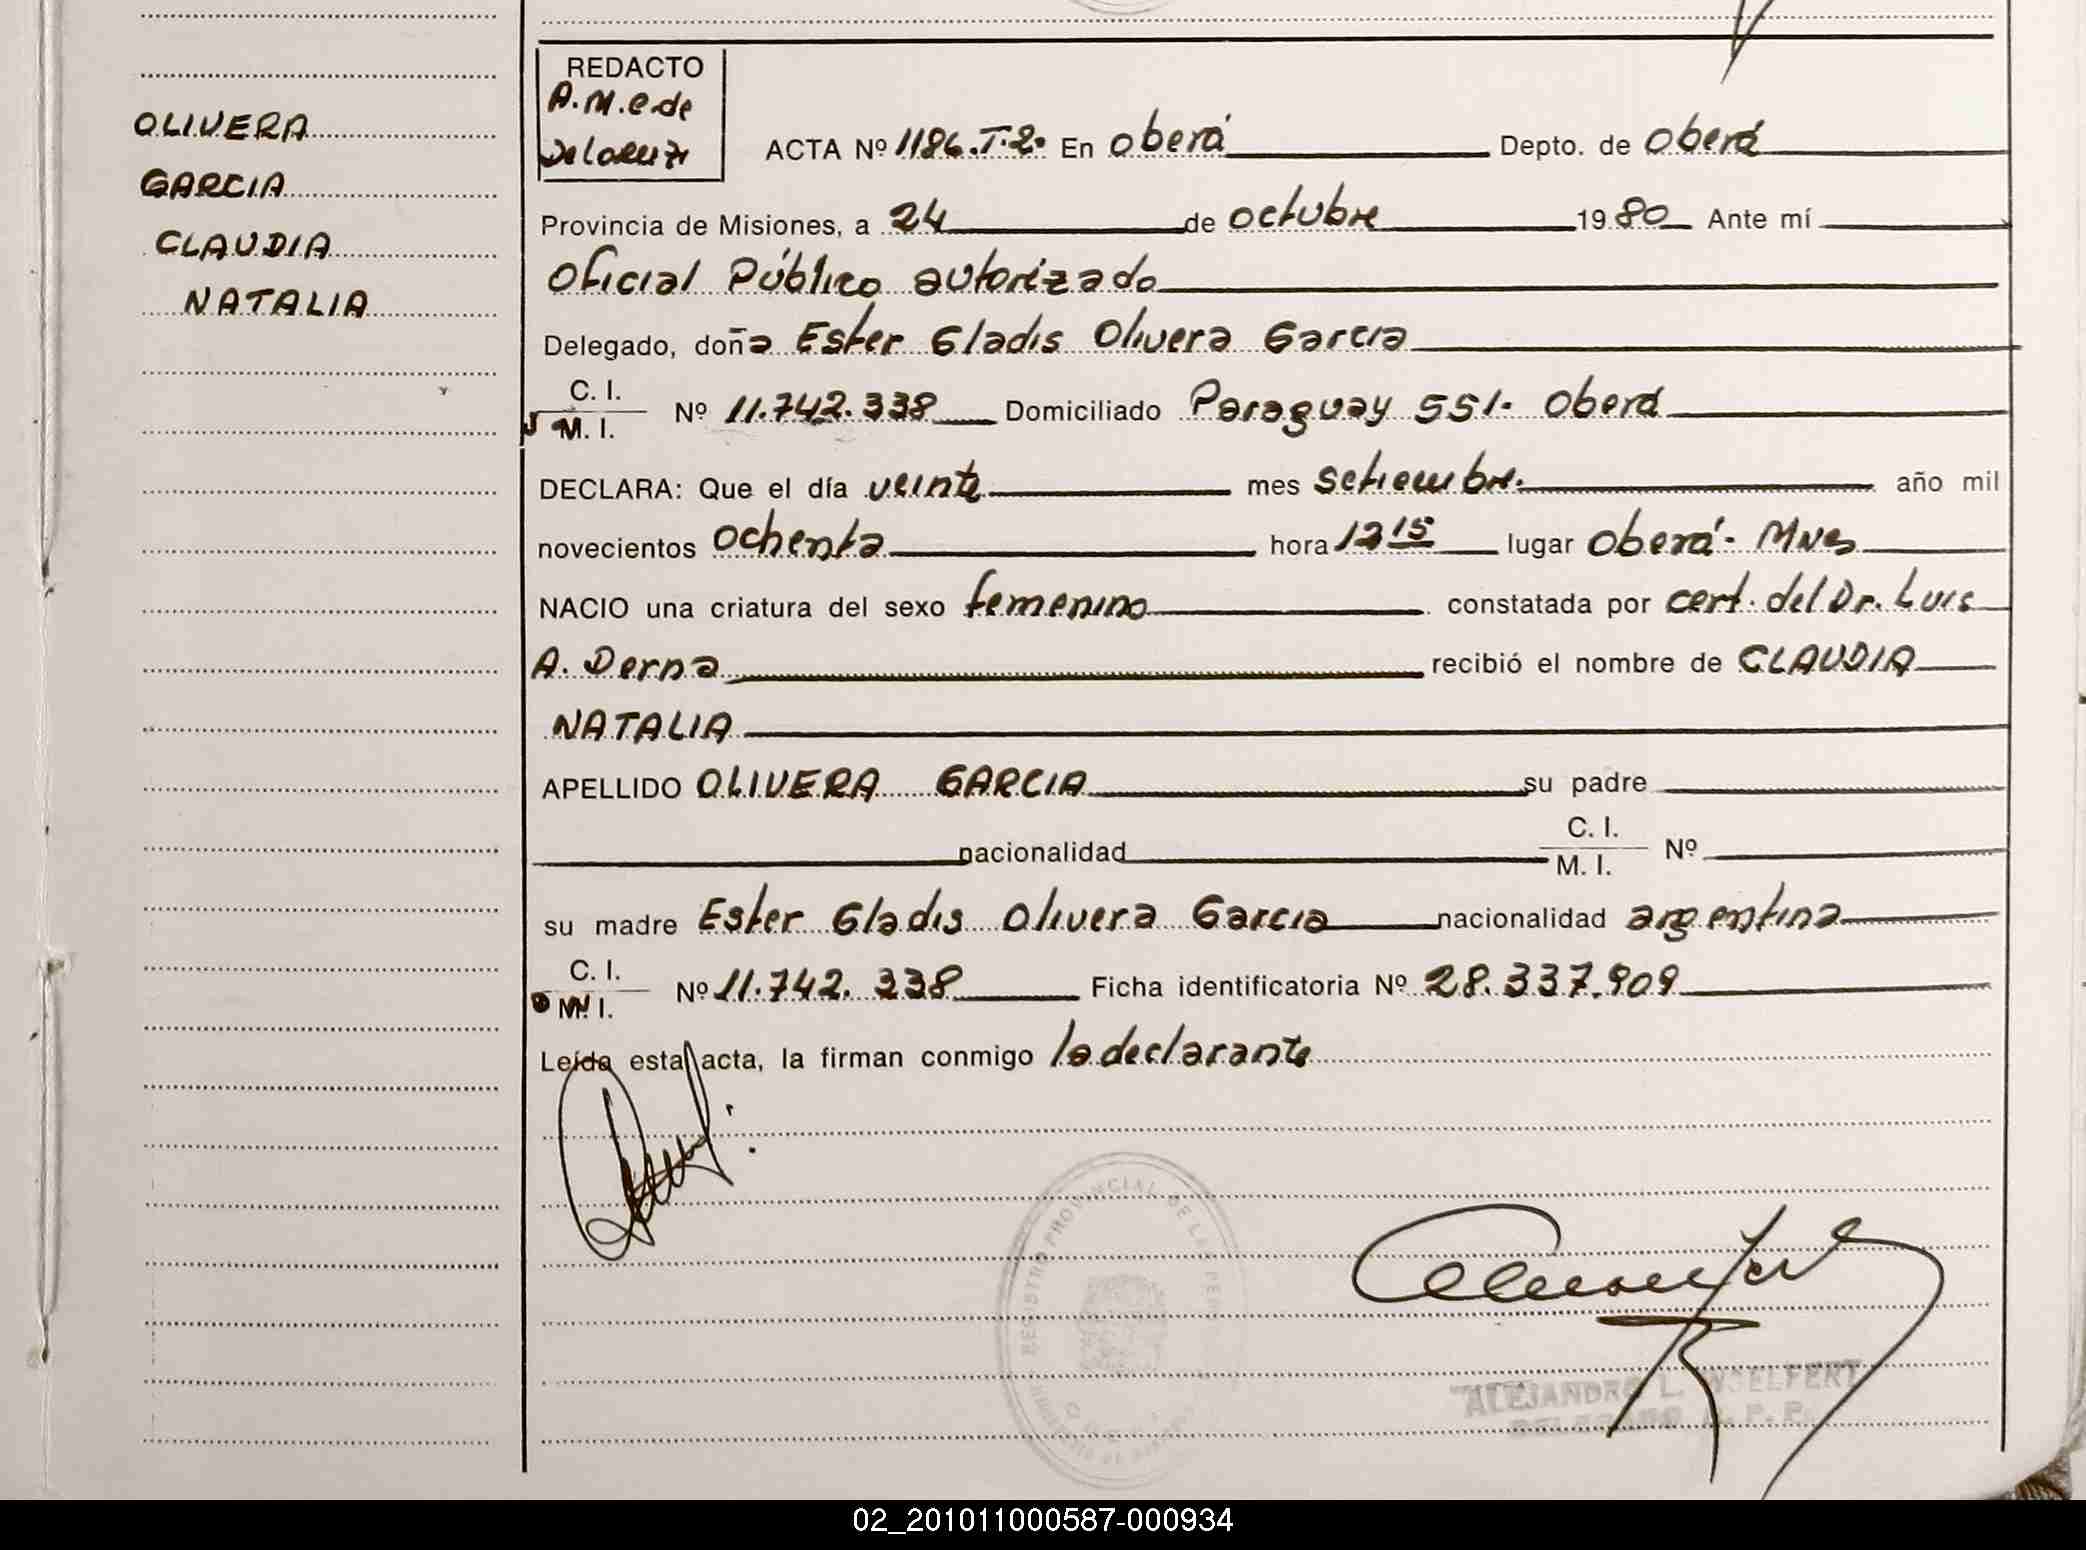 OLIVERA
GARCIA
CLAUDIA
NATALIA
REDACTO
A.M.C. de
ACTA Nº 1186.T.2. En Oberá Depto. de Oberá
Provincia de Misiones, a 24 de octubre 1980 Ante mí
Oficial Público autorizado
Delegado, doña Ester Gladis Olivera Garcia
C. I.
M. I. Nº 11.742.338 Domiciliado Paraguay 551. Oberá
DECLARA: Que el día veinte mes setiembre. año mil
novecientos ochenta hora 12 15 lugar Oberá - Mnes
NACIO una criatura del sexo femenino constatada por cert. del Dr. Luis
A. Derna recibió el nombre de CLAUDIA
NATALIA
APELLIDO OLIVERA GARCIA su padre
nacionalidad C. I. M. I. Nº
su madre Ester Gladis Olivera Garcia nacionalidad argentina
C. I.
M. I. Nº 11.742.338 Ficha identificatoria Nº 28.337.909
Leída esta acta, la firman conmigo la declarante
REGISTRO PROVINCIAL DE LAS
ALEJANDRO L.
02_201011000587-000934